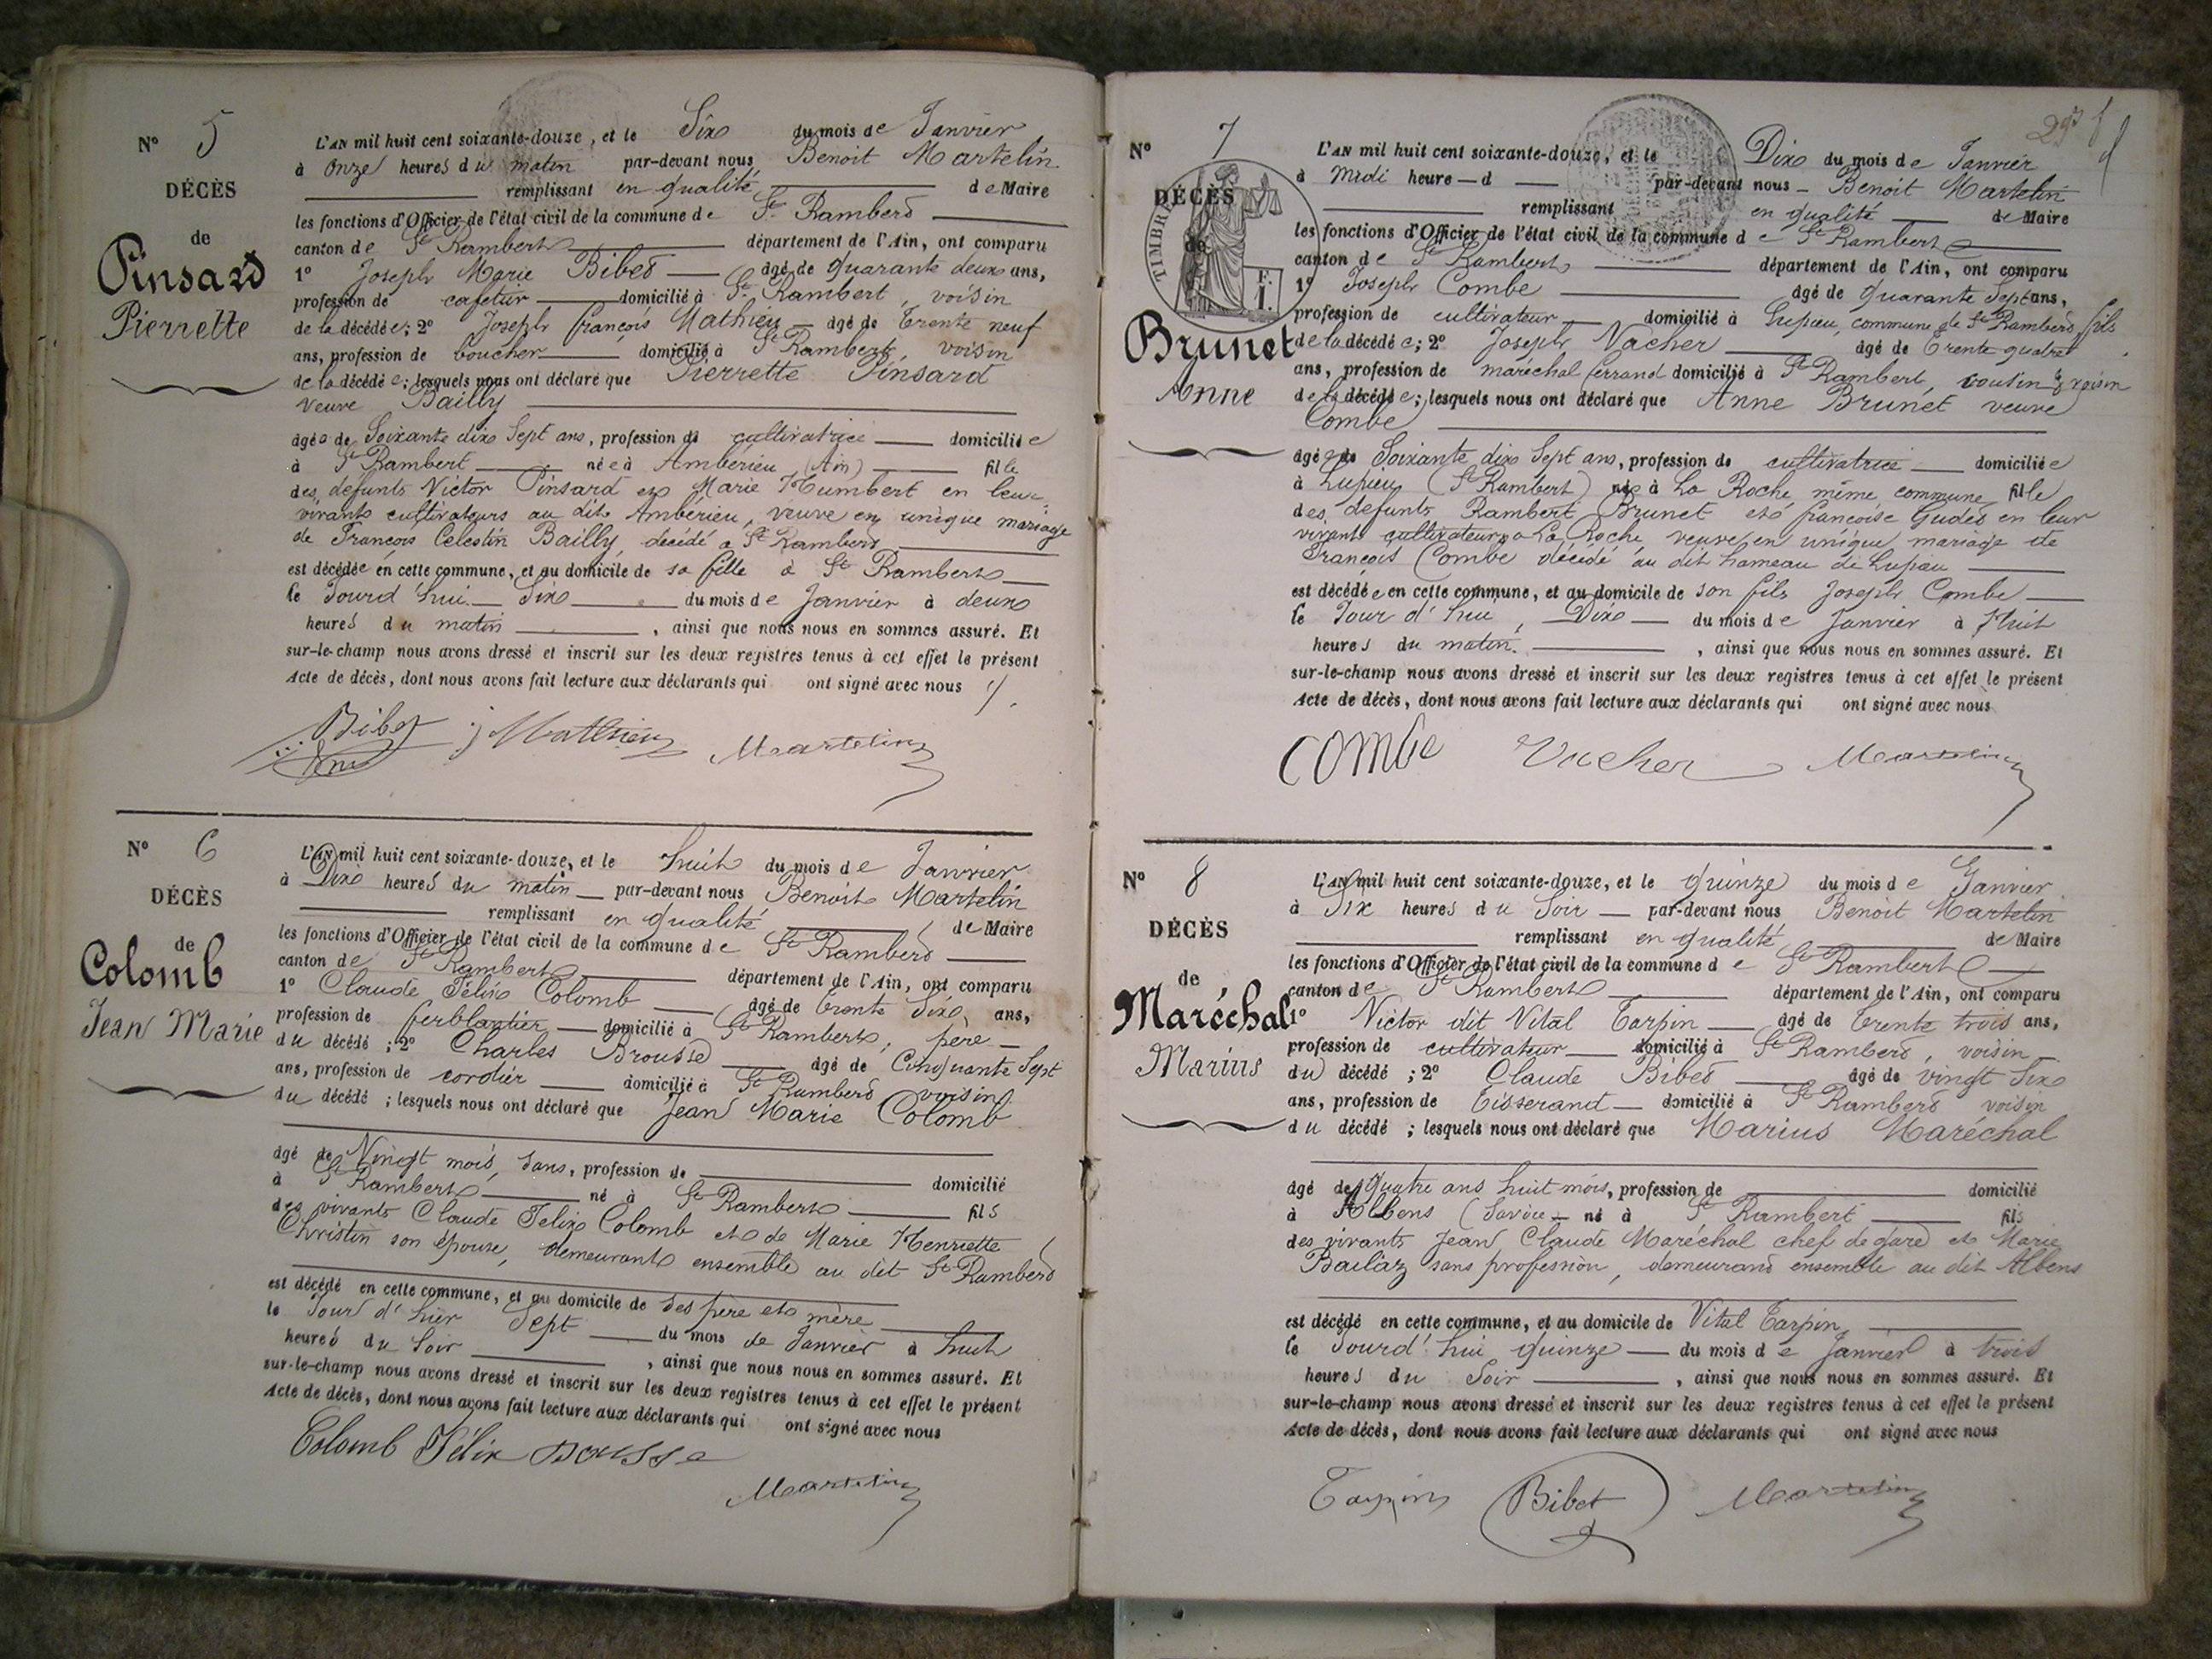 N° 5
DÉCÈS
de
Pinsard
Pierrette
L'AN mil huit cent soixante-douze, et le Six du mois de Janvier
à onze heures du matin par-devant nous Benoit Martelin
remplissant en qualité de Maire
les fonctions d'Officier de l'état civil de la commune de St Rambert
canton de St Rambert département de l'Ain, ont comparu
1° Joseph Marie Bibet âgé de quarante deux ans,
profession de cafetier domicilié à St Rambert, voisin
de la décédée; 2° Joseph françois Mathieu âgé de trente neuf
ans, profession de boucher domicilié à St Rambert, voisin
de la décédée; lesquels nous ont déclaré que Pierrette Pinsard
veuve Bailly
âgée de Soixante dix Sept ans, profession de cultivatrice domiciliée
à St Rambert née à Ambérieu (Ain) fille
des defunts Victor Pinsard et Marie Humbert en leur
vivants cultivateurs au dit Ambérieu, veuve en unique mariage
de François Celestin Bailly, decédé à St Rambert
est décédée en cette commune, et au domicile de sa fille à St Rambert
le Jourd'hui Six du mois de Janvier à deux
heures du matin, ainsi que nous nous en sommes assuré. Et
sur-le-champ nous avons dressé et inscrit sur les deux registres tenus à cet effet le présent
Acte de décès, dont nous avons fait lecture aux déclarants qui ont signé avec nous
Bibet j Mathieu Martelin
N° 6
DÉCÈS
de
Colomb
Jean Marie
L'AN mil huit cent soixante-douze, et le huit du mois de Janvier
à Dix heures du matin par-devant nous Benoit Martelin
remplissant en qualité de Maire
les fonctions d'Officier de l'état civil de la commune de St Rambert
canton de St Rambert département de l'Ain, ont comparu
1° Claude Félix Colomb âgé de trente Six ans,
profession de ferblantier domicilié à St Rambert, père
du décédé; 2° Charles Brousse âgé de Cinquante Sept
ans, profession de cordier domicilié à St Rambert voisin
du décédé; lesquels nous ont déclaré que Jean Marie Colomb
âgé de Vingt mois, sans, profession de domicilié
à St Rambert né à St Rambert fils
des vivants Claude Felix Colomb et de Marie Henriette
Christin son épouse, demeurant ensemble au dit St Rambert
est décédé en cette commune, et au domicile de Ses père et mère
le Jour d'hier Sept du mois de Janvier à huit
heures du Soir, ainsi que nous nous en sommes assuré. Et
sur-le-champ nous avons dressé et inscrit sur les deux registres tenus à cet effet le présent
Acte de décès, dont nous avons fait lecture aux déclarants qui ont signé avec nous
Colomb Félix
Martelin
N° 7
DÉCÈS
de
TIMBRE
F.
1.
Brunet
Anne
L'AN mil huit cent soixante-douze, et le Dix du mois de Janvier
à Midi heure d par-devant nous Benoit Martelin
remplissant en qualité de Maire
les fonctions d'Officier de l'état civil de la commune de St Rambert
canton de St Rambert département de l'Ain, ont comparu
1° Joseph Combe âgé de quarante Sept ans,
profession de cultivateur domicilié à Lupieu, commune de St Rambert, fils
de la décédée; 2° Joseph Vacher âgé de trente quatre
ans, profession de maréchal ferrand domicilié à St Rambert, cousin & voisin
de la décédée; lesquels nous ont déclaré que Anne Brunet veuve
Combe
âgée de Soixante dix Sept ans, profession de cultivatrice domiciliée
à Lupieu (St Rambert) née à La Roche même commune fille
des defunts Rambert Brunet et françoise Gudet en leur
vivant cultivateurs a La Roche veuve en unique mariage de
François Combe décédé au dit hameau de Lupieu
est décédée en cette commune, et au domicile de son fils Joseph Combe
le Jour d'hui, Dix du mois de Janvier à Huit
heures du matin., ainsi que nous nous en sommes assuré. Et
sur-le-champ nous avons dressé et inscrit sur les deux registres tenus à cet effet le présent
Acte de décès, dont nous avons fait lecture aux déclarants qui ont signé avec nous
COMBe Vacher Martelin
N° 8
DÉCÈS
de
Maréchal
Marius
L'AN mil huit cent soixante-douze, et le quinze du mois de Janvier
à Six heures du Soir par-devant nous Benoit Martelin
remplissant en qualité de Maire
les fonctions d'Officier de l'état civil de la commune de St Rambert
canton de St Rambert département de l'Ain, ont comparu
1° Victor dit Vital Tarpin âgé de trente trois ans,
profession de cultivateur domicilié à St Rambert, voisin
du décédé; 2° Claude Bibet âgé de vingt Six
ans, profession de tisserand domicilié à St Rambert voisin
du décédé; lesquels nous ont déclaré que Marius Maréchal
âgé de quatre ans huit mois, profession de domicilié
à Albens (Savoie né à St Rambert fils
des vivants Jean Claude Maréchal chef de gare et Marie
Bailaz sans profession, demeurand ensemble au dit Albens
est décédé en cette commune, et au domicile de Vital Tarpin
le Jourd'hui quinze du mois de Janvier à trois
heures du Soir, ainsi que nous nous en sommes assuré. Et
sur-le-champ nous avons dressé et inscrit sur les deux registres tenus à cet effet le présent
Acte de décès, dont nous avons fait lecture aux déclarants qui ont signé avec nous
Tarpin Bibet Martelin